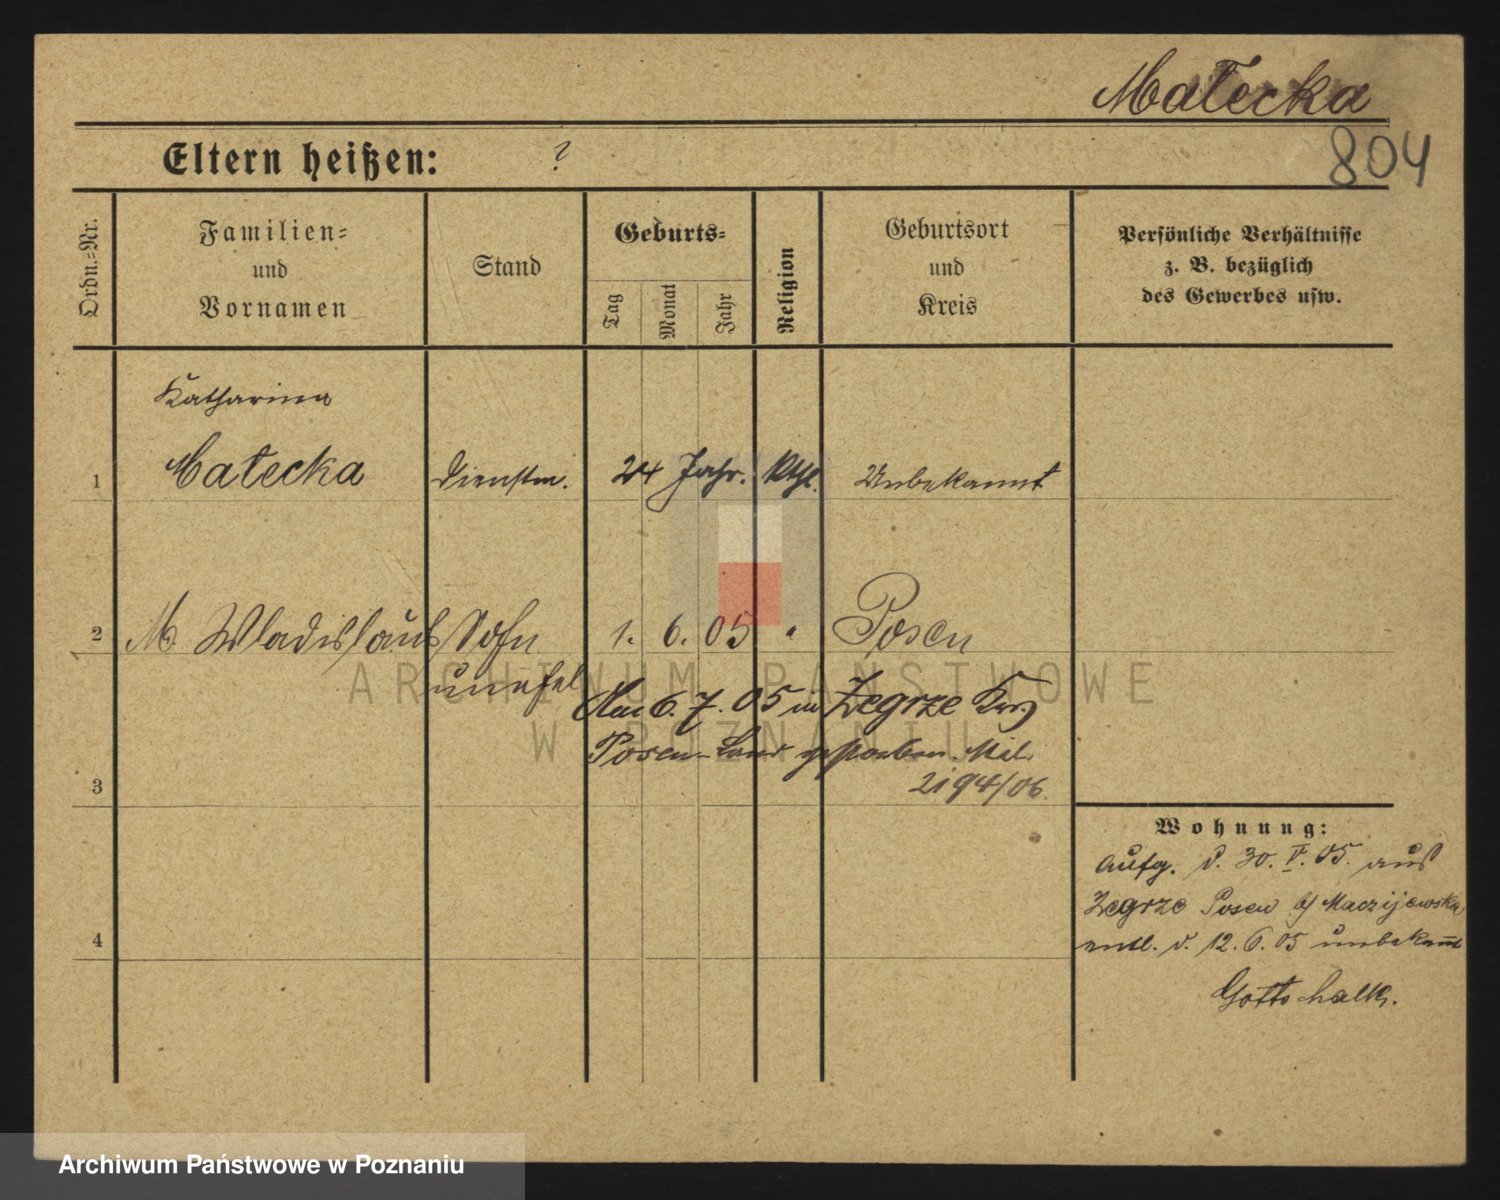 Małecka
804
Eltern heißen: ?
Ordn.-Nr.
Familien-
und
Vornamen
Stand
Geburts-
Tag
Monat
Jahr
Religion
Geburtsort
und
Kreis
Persönliche Verhältnisse
z. B. bezüglich
des Gewerbes usw.
Katharina
1 Małecka Dienstm. 24 Jahr. Kth. Unbekannt
2 M. Wladislaus Sohn 1. 6. 05 " Posen
unehel
Am 6. 7. 05 in Zegrze Krs
Posen-Land gestorben.
2194/06.
3
Wohnung:
Aufg. d. 30. V. 05. aus
Zegrze Posen b/ Maczijewska
entl. d. 12. 6. 05 unbekannt
Gottschalk.
4
ARCHIWUM PAŃSTWOWE
W POZNANIU
Archiwum Państwowe w Poznaniu